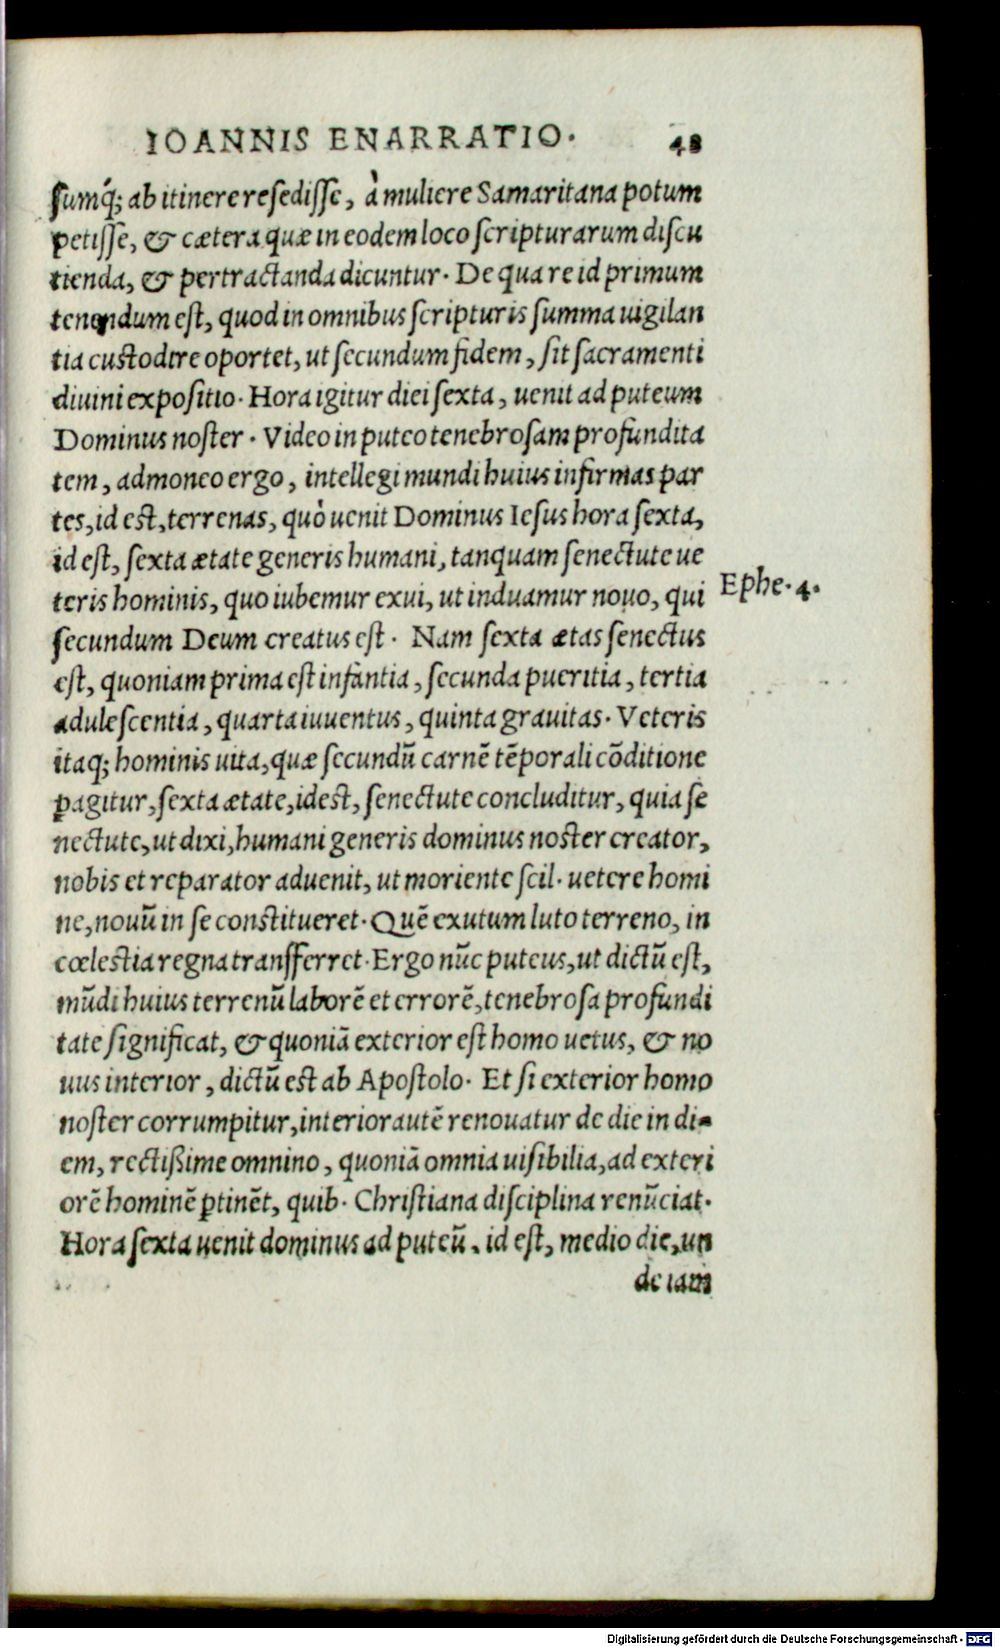 IOANNIS ENARRATIO. 48
sumq́; ab itinere resedisse, à muliere Samaritana potum
petisse, & cætera quæ in eodem loco scripturarum discu
tienda, & pertractanda dicuntur. De qua re id primum
tenendum est, quod in omnibus scripturis summa uigilan
tia custodire oportet, ut secundum fidem, sit sacramenti
diuini expositio. Hora igitur diei sexta, uenit ad puteum
Dominus noster. Video in puteo tenebrosam profundita
tem, admoneo ergo, intellegi mundi huius infirmas par
tes, id est, terrenas, quò uenit Dominus Iesus hora sexta,
id est, sexta ætate generis humani, tanquam senectute ue
teris hominis, quo iubemur exui, ut induamur nouo, qui
Ephe. 4.
secundum Deum creatus est. Nam sexta ætas senectus
est, quoniam prima est infantia, secunda pueritia, tertia
adulescentia, quarta iuuentus, quinta grauitas. Veteris
itaq; hominis uita, quæ secundũ carnẽ tẽporali cõditione
ꝑagitur, sexta ætate, idest, senectute concluditur, quia se
nectute, ut dixi, humani generis dominus noster creator,
nobis et reparator aduenit, ut moriente scil. uetere homi
ne, nouũ in se constitueret. Quẽ exutum luto terreno, in
cœlestia regna transfferret. Ergo nũc puteus, ut dictũ est,
mũdi huius terrenũ laborẽ et errorẽ, tenebrosa profundi
tate significat, & quoniã exterior est homo uetus, & no
uus interior, dictũ est ab Apostolo. Et si exterior homo
noster corrumpitur, interior autẽ renouatur de die in di-
em, rectißime omnino, quoniã omnia uisibilia, ad exteri
orẽ hominẽ ꝑtinẽt, quib. Christiana disciplina renũciat.
Hora sexta uenit dominus ad puteũ, id est, medio die, un
de iam
Digitalisierung gefördert durch die Deutsche Forschungsgemeinschaft - DFG